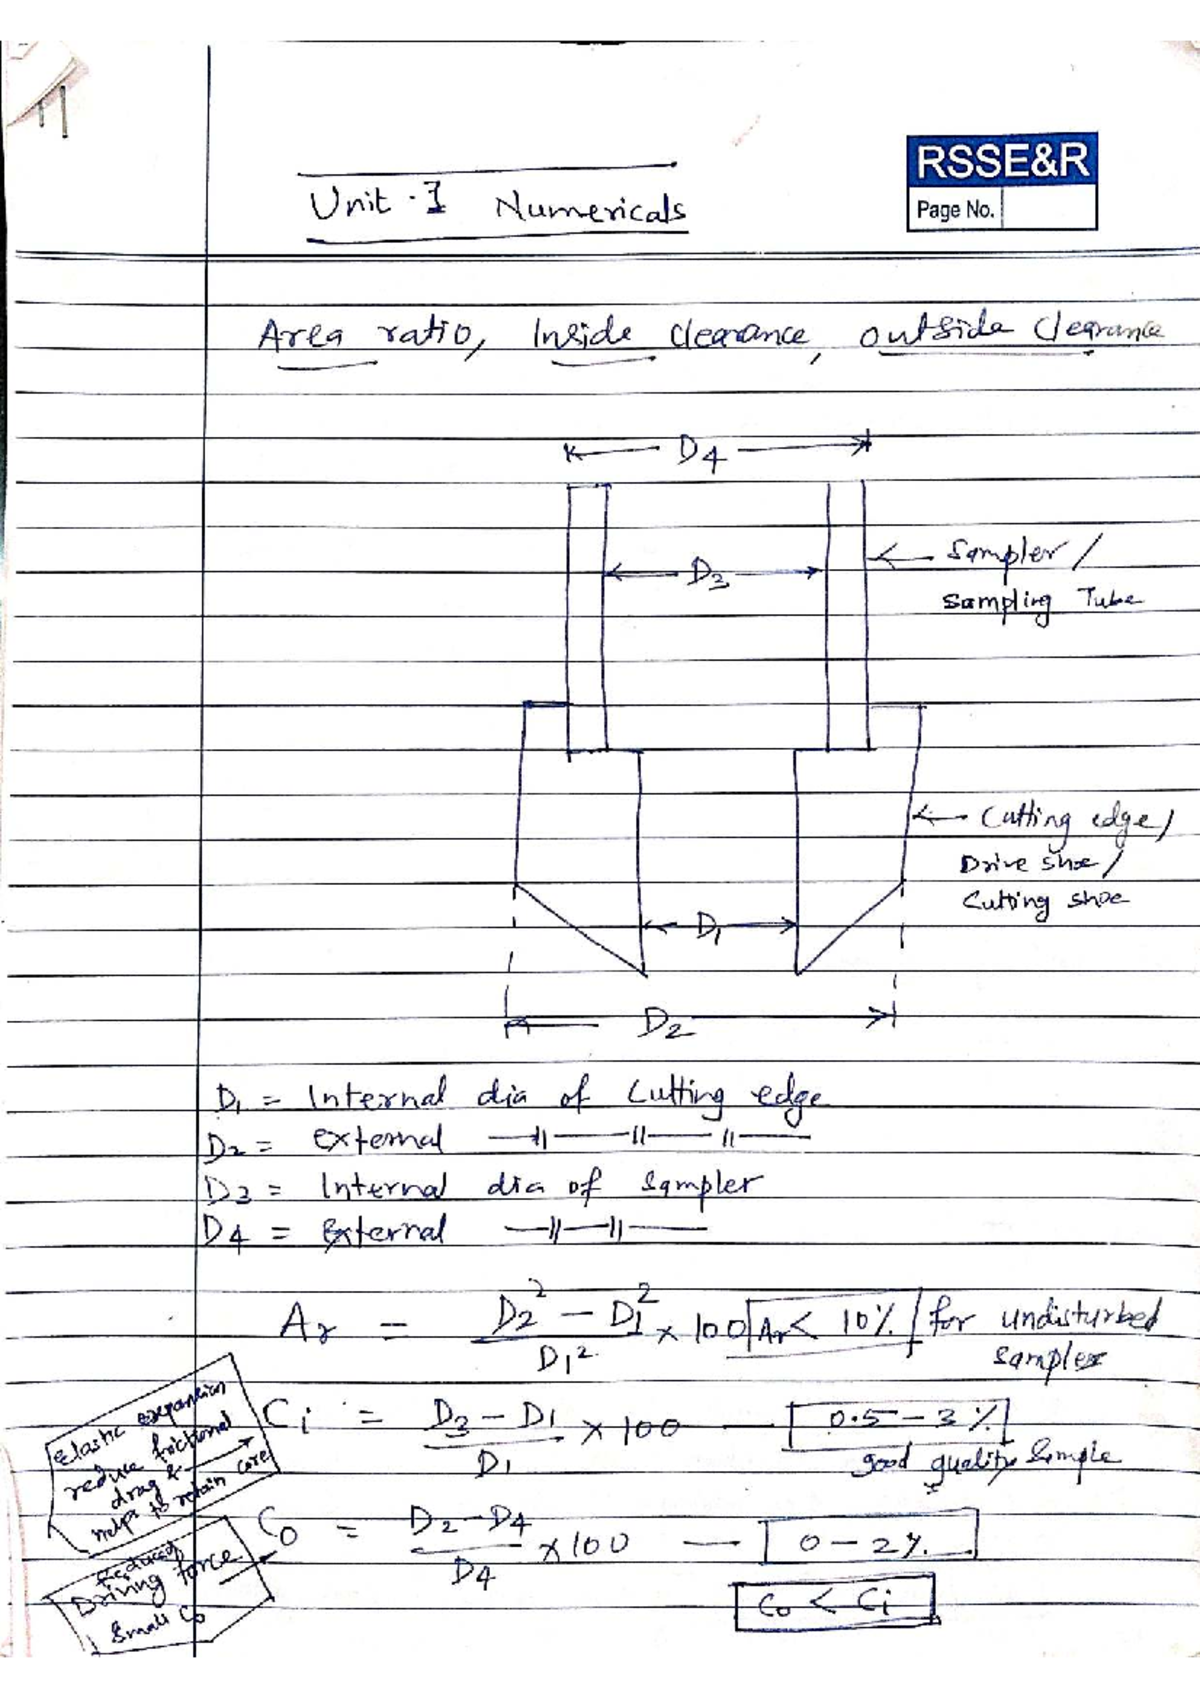 RSSE&R
Page No.
Unit-I Numericals
Area ratio, Inside clearance, outside Clearance
D4
D3
Sampler /
Sampling Tube
Cutting edge /
Drive shoe /
Cutting shoe
D1
D2
D1 = Internal dia of Cutting edge
D2 = external —||—||—||—
D3 = Internal dia of Sampler
D4 = External —||—||—
Ar = D2² – D1² / D1² × 100 Ar < 10% for undisturbed
samples
Ci = D3 – D1 / D1 × 100 — 0.5 – 3 %
good quality Sample
Elastic expansion
reduce frictional
drag &
helps to retain core
Co = D2 – D4 / D4 × 100 — 0 – 2 %.
Co < Ci
Reduced
Driving force
Small Co